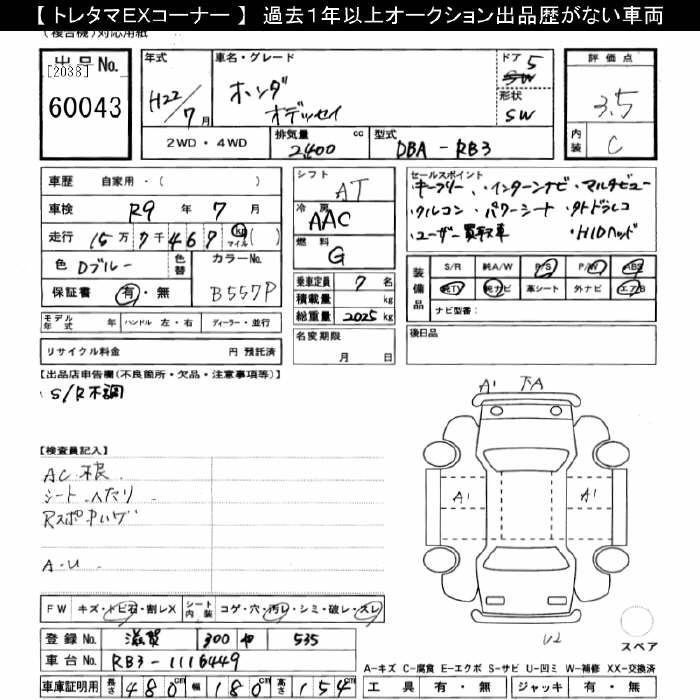 【 トレタマEXコーナー 】 過去1年以上オークション出品歴がない車両
(複合機)対応用紙
出品No. [2038] 60043
年式 H22/7月
車名・グレード ホンダ オデッセイ
ドア 5
形状 SW
評価点 3.5
内装 C
2WD・4WD
排気量 2400 cc
型式 DBA-RB3
車歴 自家用・( )
車検 R9年7月
走行 15万7千469 km マイル ( )
色 Dブルー 色替
カラーNo. B557P
保証書 有・無
モデル年式 年 ハンドル 左・右 ディーラー・並行
リサイクル料金 円 預託済
シフト AT
冷房 AAC
燃料 G
乗車定員 7 名
積載量 kg
総重量 2025 kg
名変期限 月 日
セールスポイント
・キーフリー ・インターナビ ・マルチビュー
・クルコン ・パワーシート
・ユーザー買取車 ・HIDヘッド
装備品 S/R 純A/W P/S P/W ABS
純TV 純ナビ 革シート 外ナビ エアB
ナビ型番:
後日品
【出品店申告欄(不良箇所・欠品・注意事項等)】
・S/R不調
【検査員記入】
AC 不良
シート ヘタリ
A・U
FW キズ・トビ石・割レX シート内装 コゲ・穴・汚レ・シミ・破レ・スレ
登録No. 滋賀 300 や 535
車台No. RB3-1116449
車庫証明用 長さ 480cm 幅 180cm 高さ 154cm
A1 下A
A1 A1
U2
スペア
A-キズ C-腐食 E-エクボ S-サビ U-凹ミ W-補修 XX-交換済
工具 有・無 ジャッキ 有・無